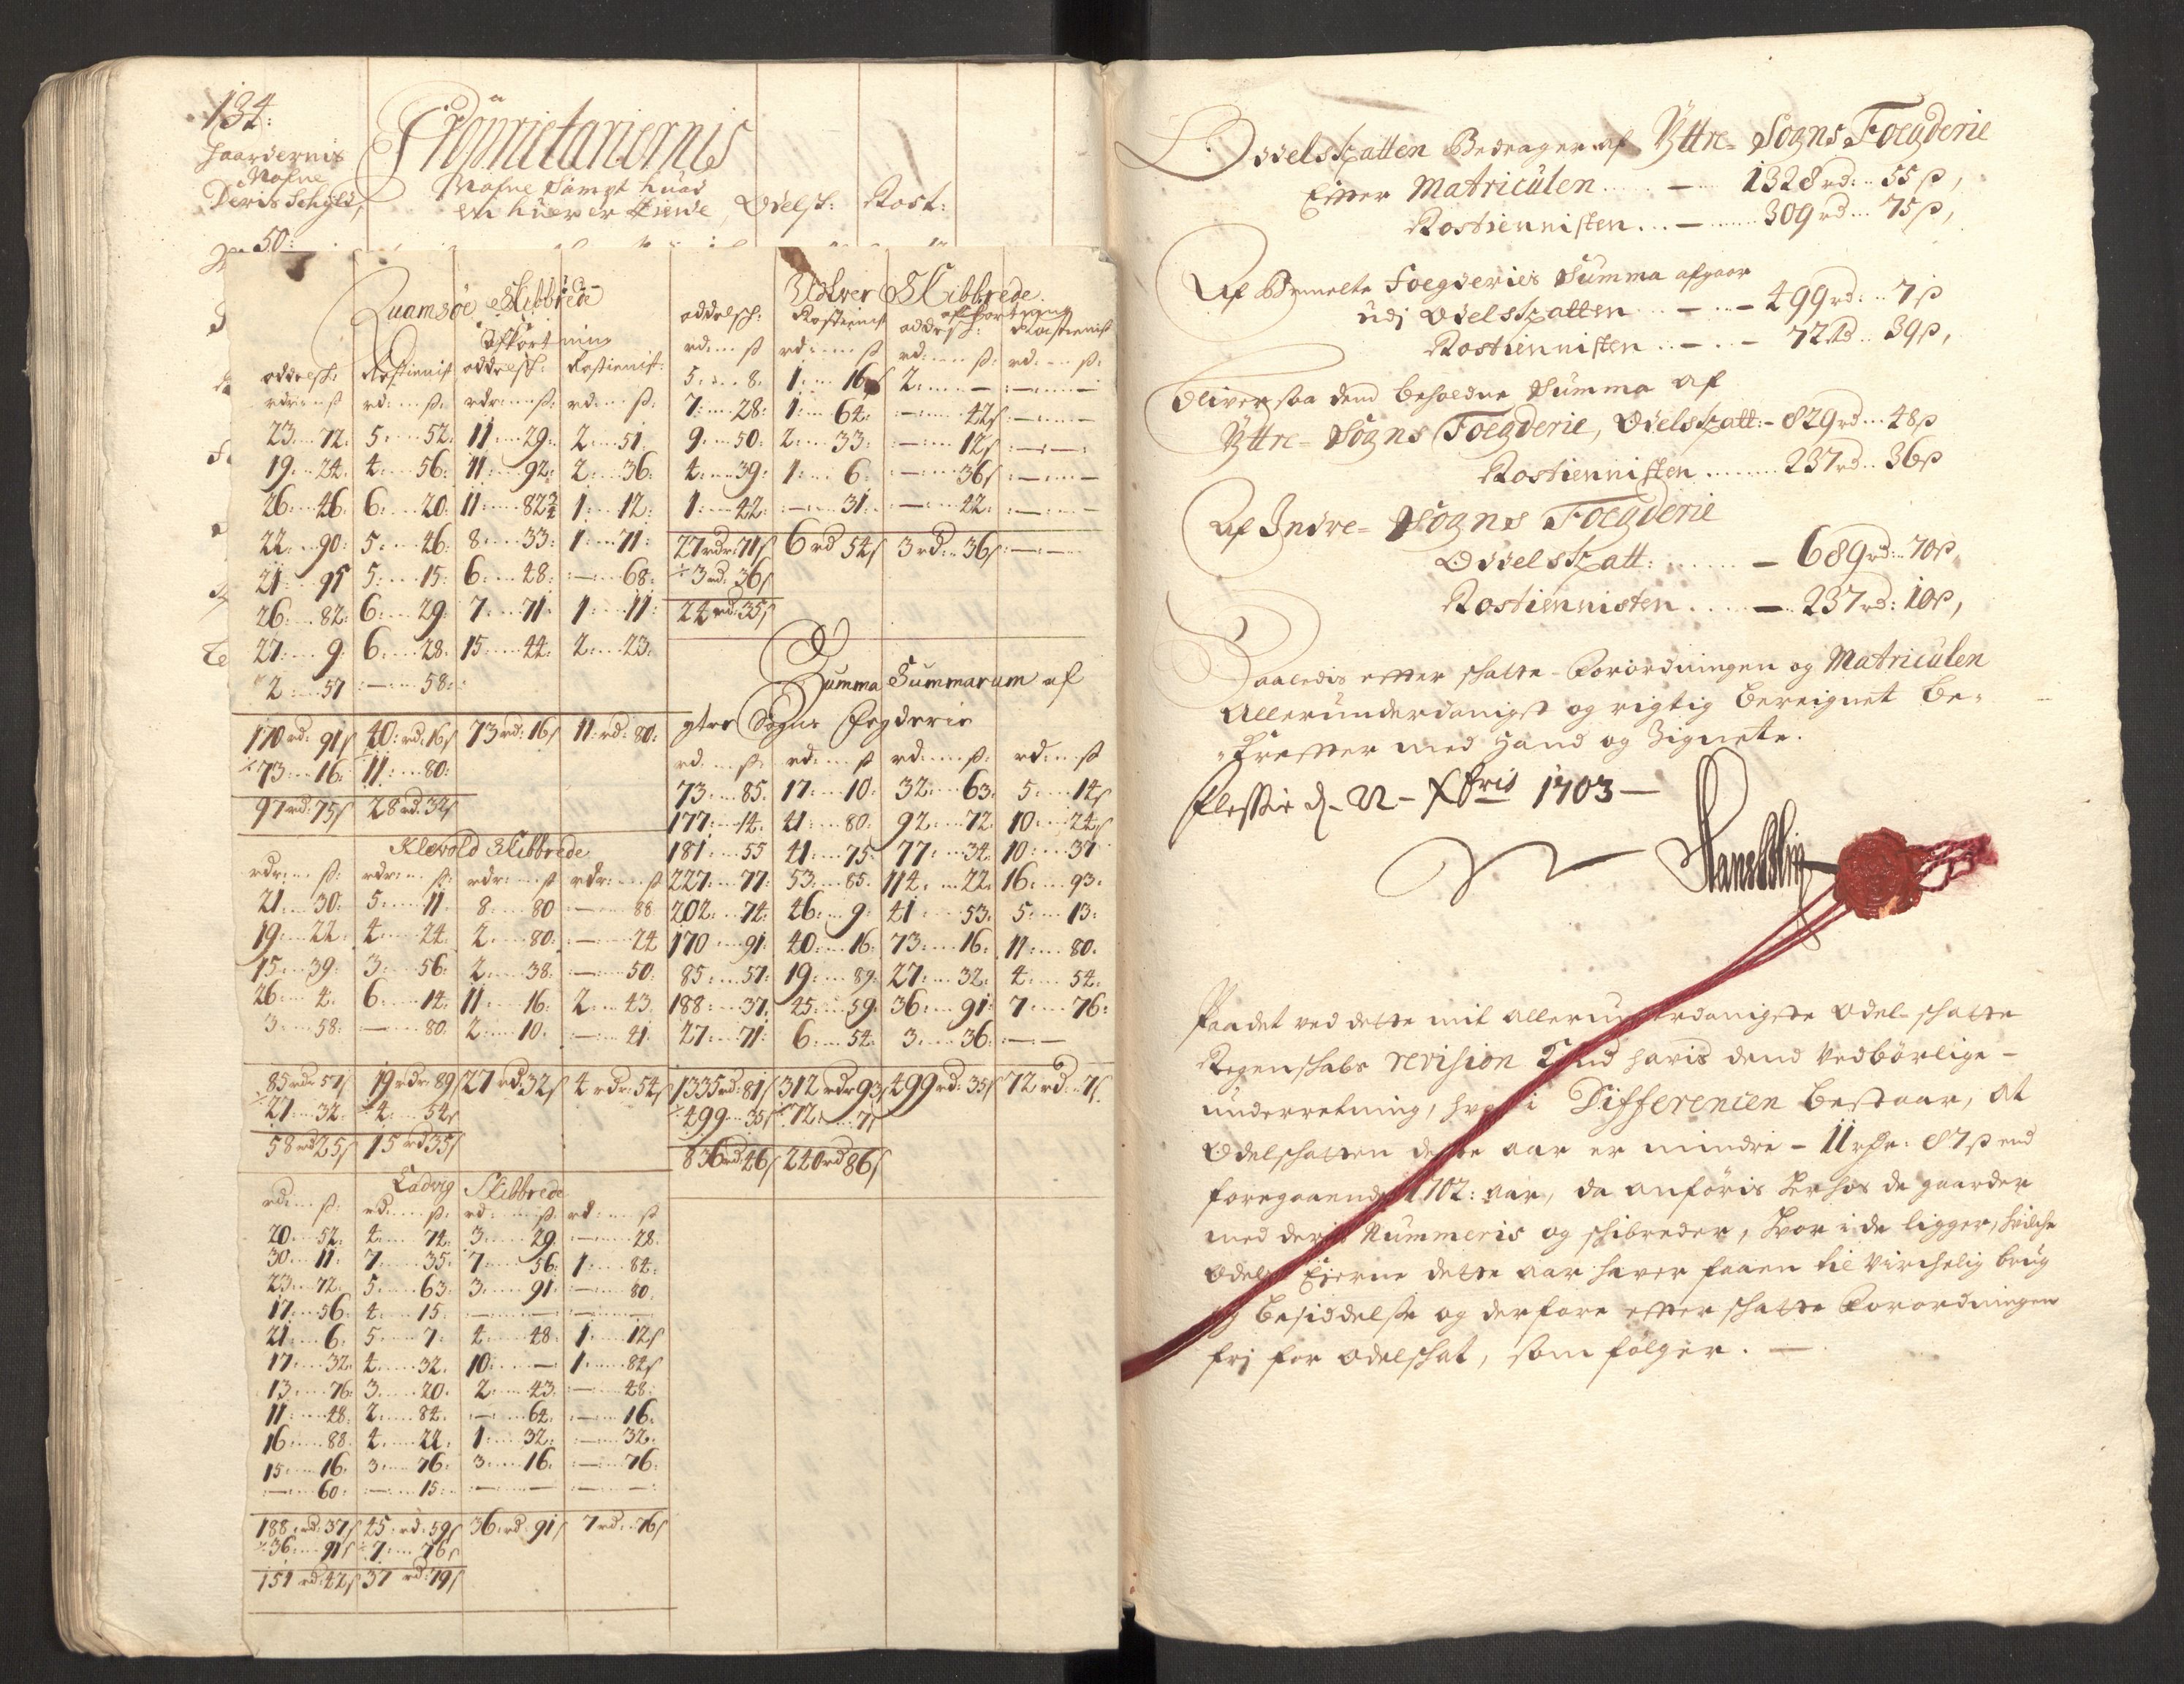 134:
Gaardernis
Nafne
Deris Schyld,
50:
Proprietariernis
Nafne Sampt huad
en huer er Eiende, Odelsk: Rost:
Quamsøe Skibbrede
Afkortning
oddelsk: Rostienist oddelsk: Rostienist:
rdr ß rd ß rdr ß rd ß
23 72: 5 52: 11 29: 2 51
19 24: 4 56: 11 92: 2 36:
26 46: 6 20: 11 82 3/4 1 12:
22 90: 5 46: 8 33: 1 71:
21 95 5 15: 6 48: – 68:
26 82: 6 29: 7 71: 1 11:
27 9: 6 28: 15 44: 2 23:
2 57 – 58:
170 rd: 91ß 40: rd: 16ß 73 rd: 16ß 11: rd: 80:
73 16: 11: 80:
97 rd: 75ß 28 rd: 32ß
Klevold Skibbrede
rdr: ß: rdr: ß: rdr: ß rdr: ß
21 30: 5 11 8 80 – 88
19 22: 4 24: 2 80: – 24
15 39: 3 56: 2 38: – 50:
26 4: 6 14: 11 16: 2 43
3 58: – 80: 2 10: – 41
85 rdr 57ß 19 rdr: 89ß 27 rd: 32ß 4 rdr: 54ß
27 32: 4 54ß
58 rd 25ß 15 rd 35ß
Ladvig Skibbrede
rd ß: rd ß: rd ß: rd ß
20 52: 4 74: 3 29 – 28:
30 11: 7 35: 7 56: 1 84:
23 72: 5 63: 3 91: – 80:
17 56: 4 15: – – – –
21 6: 5 7: 4 48: 1 12ß
17 32: 4 32: 10 – 1 84ß
13 76: 3 20: 2 43: – 48:
11 48: 2 84: – 64: – 16:
16 88: 4 22: 1 32: – 32:
15 16: 3 76: 3 16: – 76:
– 60: – 15: – – – –
188 rd: 37ß 45 rd: 59ß 36 rd: 91ß 7 rd: 76ß
36 91ß 7 76ß
151 rd: 42ß 37 rd: 79ß
Udtver Skibbrede.
afkortning
oddelsk: Rostienist oddelsk: Rostienist
rd ß rd ß rd ß: rd ß:
5 8: 1 16ß 2 – – –
7 28: 1 64: – 42ß – –
9 50: 2 33: – 12ß – –
4 39: 1 6: – 36ß – –
1 42: – 31: – 42: – –
27 rdr: 71ß 6 rd 54ß 3 rd: 36ß – –
3 rd: 36ß
24 rd: 35ß
Summa Summarum af
ytre Sogns Fogderie
rd ß: rd ß rd ß: rd ß
73 85: 17 10: 32 63: 5 14ß
177 14: 41 80: 92 72: 10 24ß
181 55 41 75: 77 34: 10 37
227 77: 53 85: 114 22: 16 93:
202 74: 46 9: 41 53: 5 13:
170 91: 40 16: 73 16: 11 80:
85 57: 19 89: 27 32: 4 54:
188 37: 45 59: 36 91: 7 76:
27 71: 6 54: 3 36: – –
1335 rd: 81ß 312 rdr 93ß 499 rd: 35ß 72 rd: 7ß
499 35ß 72 7ß
836 rd 46ß 240 rd 86ß
Odelskatten Bedrager af Yttre-Sogns Foegderie
Efter Matriculen – 1328 rd: 55ß,
Rostiennisten – 309 rd 75ß,
Af Bemelte Foegderies Summa afgaar
udj Odelskatten – 499 rd: 7ß
Rostiennisten – 72 rd 39ß,
Bliver saa dend beholdne Summa af
Yttre-Sogns Foegderie, Odelskatt: – 829 rd 48ß
Rostiennisten 237 rd 36ß
Af Indre-Sogns Foegderie
Odelskatt: – 689 rd: 70ß
Rostiennisten – 237 rd: 10ß,
Saaledis effter skatte-Forordningen og Matriculen
Allerunderdanigst og rigtig bereignet be-
kreffter med Haand og Zignete.
Flesche d. 22 Xbris 1703
Paa det ved dette mit allerunderdanigste odel-skatte
Regenskabs revision kand havis dend vedbørlige-
underretning, hvor i Differencen bestaar, at
Odelskatten dette aar er mindre – 11 rdr: 87ß end
foregaaende 1702: aar, da anføris her hos de gaarder
med deris Nummeris og skibreder, hvor i de ligger, hvilche
odels Eierne dette aar haver faaen til virchelig brug
og besiddelse og derfore effter skatte Forordningen
frj for odelskat, som følger.